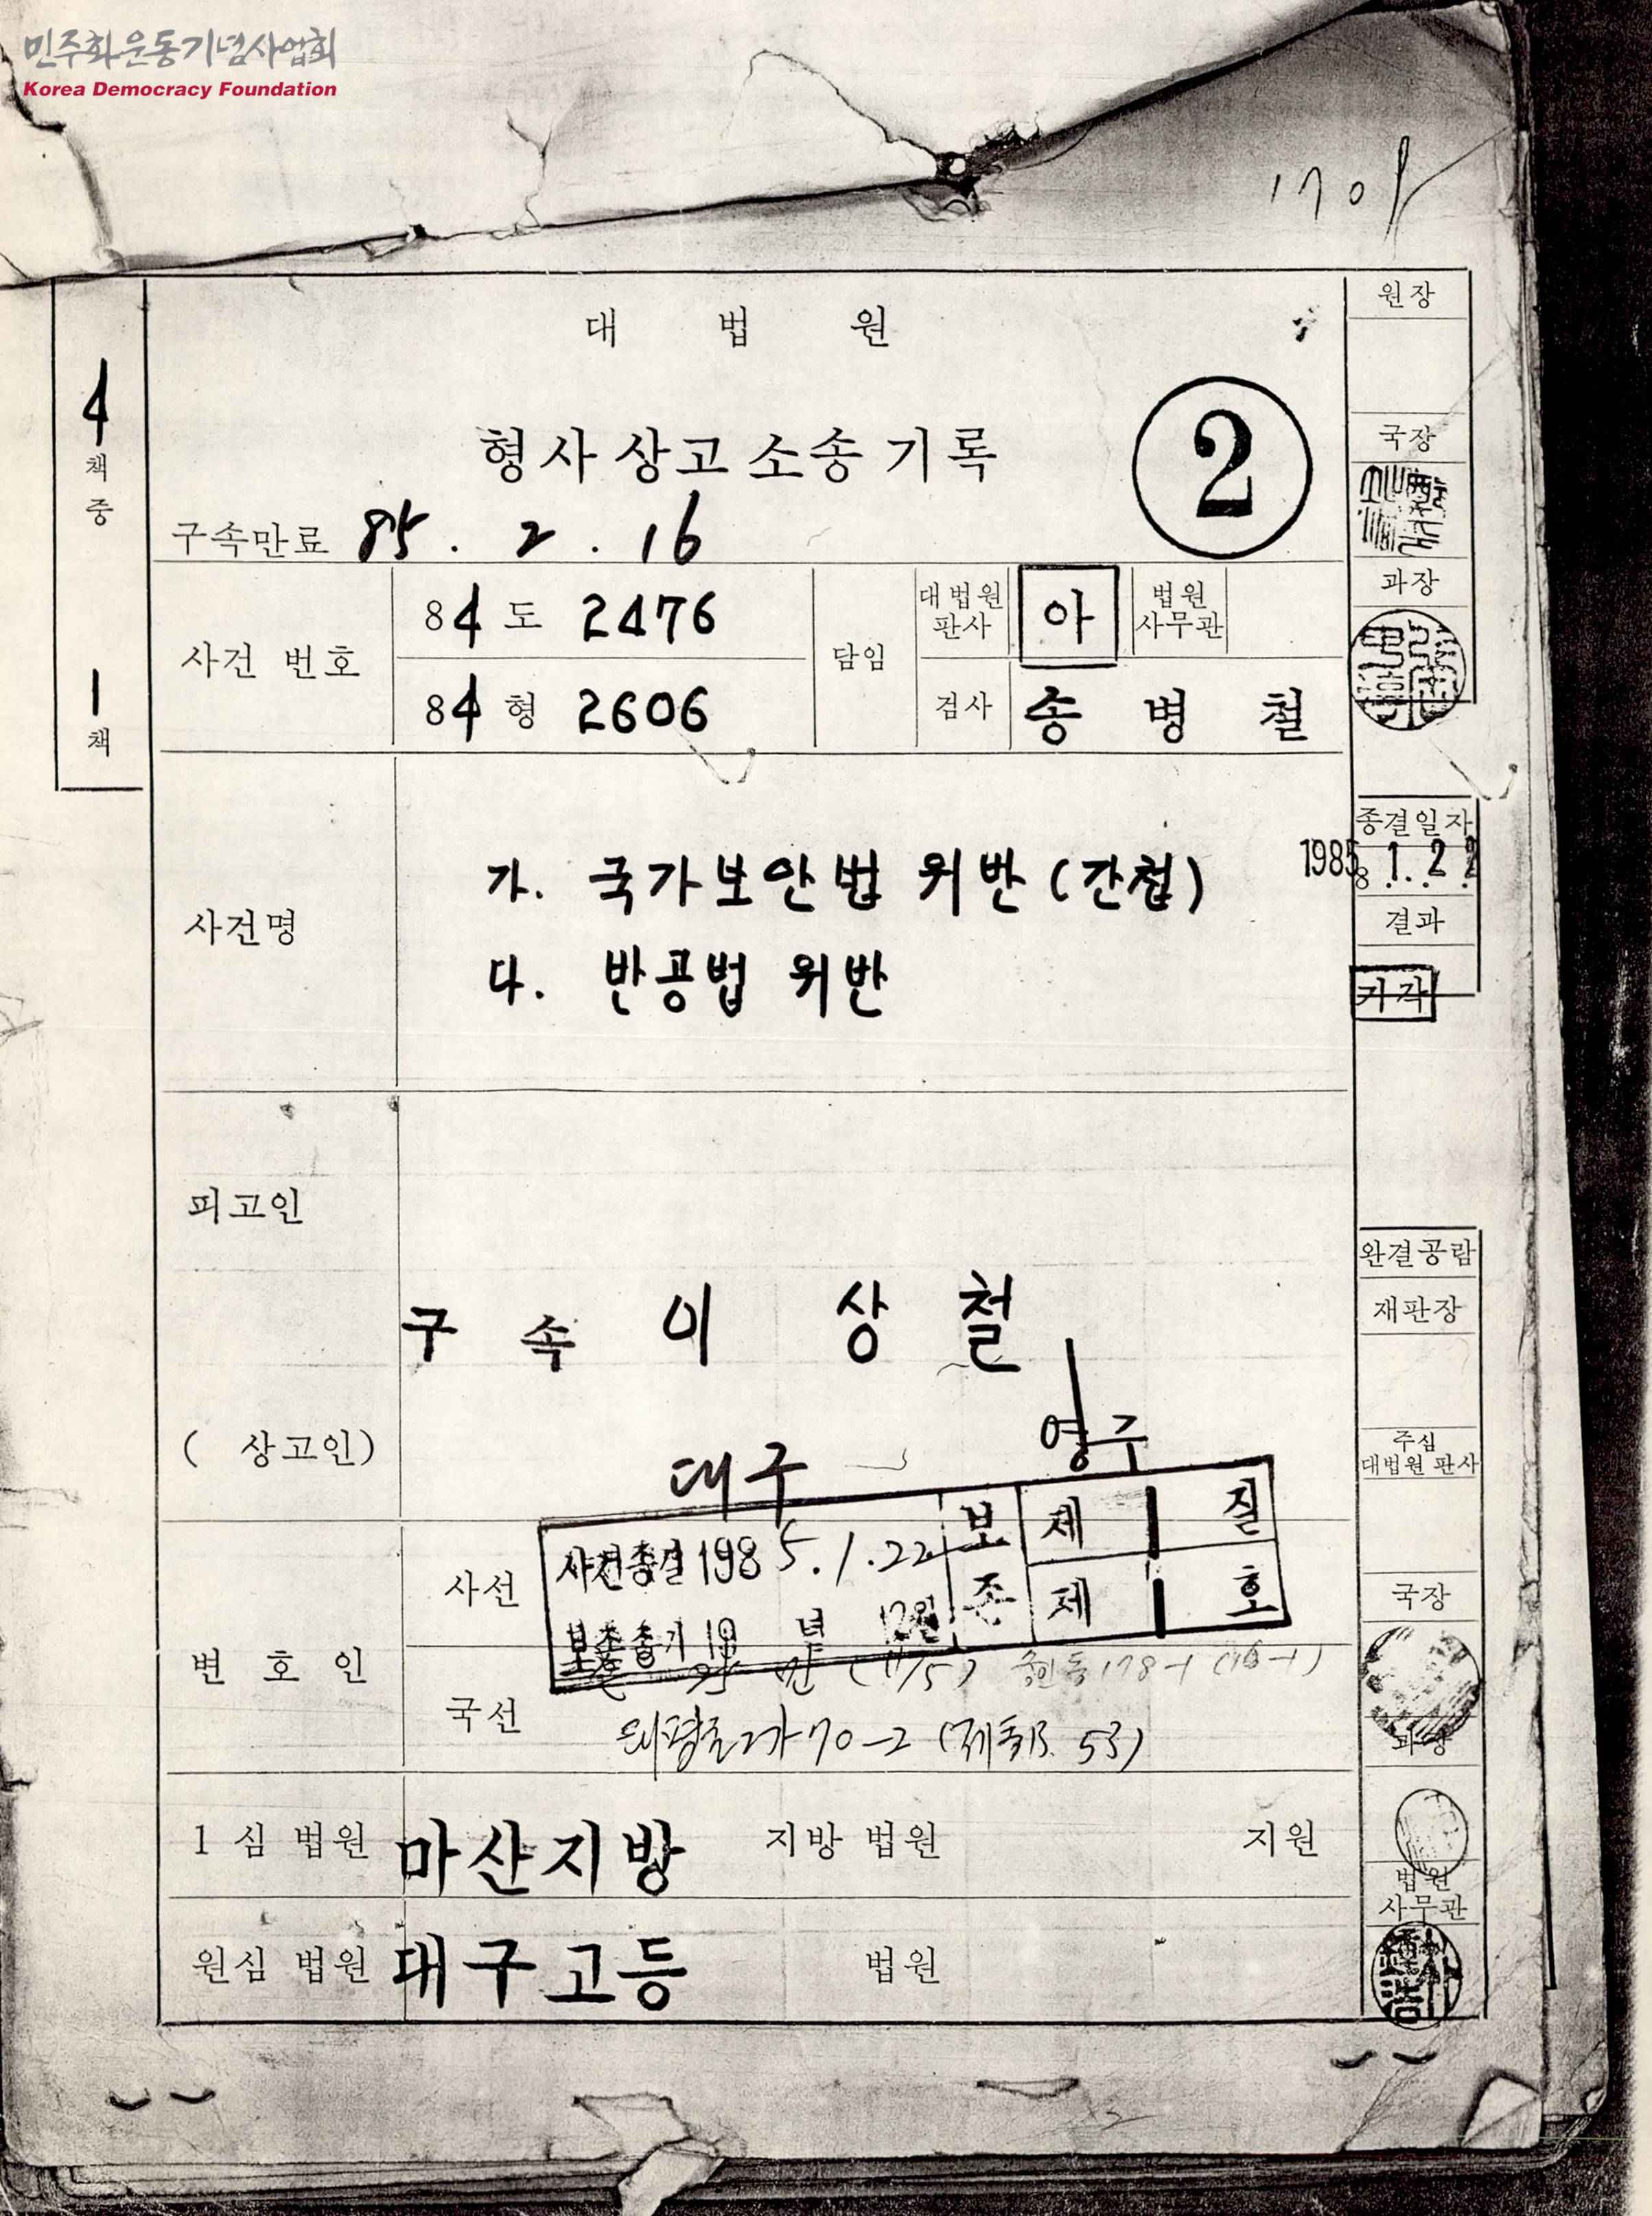 민주화운동기념사업회
Korea Democracy Foundation
1701
4
책
중
1
책
대 법 원
형사상고소송기록
2
구속만료 85. 2. 16
사건 번호
84 도 2476
84 형 2606
담임
대법원
판사
아
법원
사무관
검사
송 병 철
사건명
가. 국가보안법 위반(간첩)
다. 반공법 위반
피고인
구 속 이 상 철
(상고인)
대구
영주
변 호 인
사선
사건종결 1985.1.22
보존종기 19 년 12월
보존
제 1 질
제 1 호
국선
(11/5) 178-1 (10-1)
태평로2가 70-2 53)
1 심 법원 마산지방 지방 법원 지원
원심 법원 대구고등 법원
원장
국장
과장
종결일자
1985 8 1. 22
결과
기각
완결공람
재판장
주심
대법원 판사
국장
과장
법원
사무관